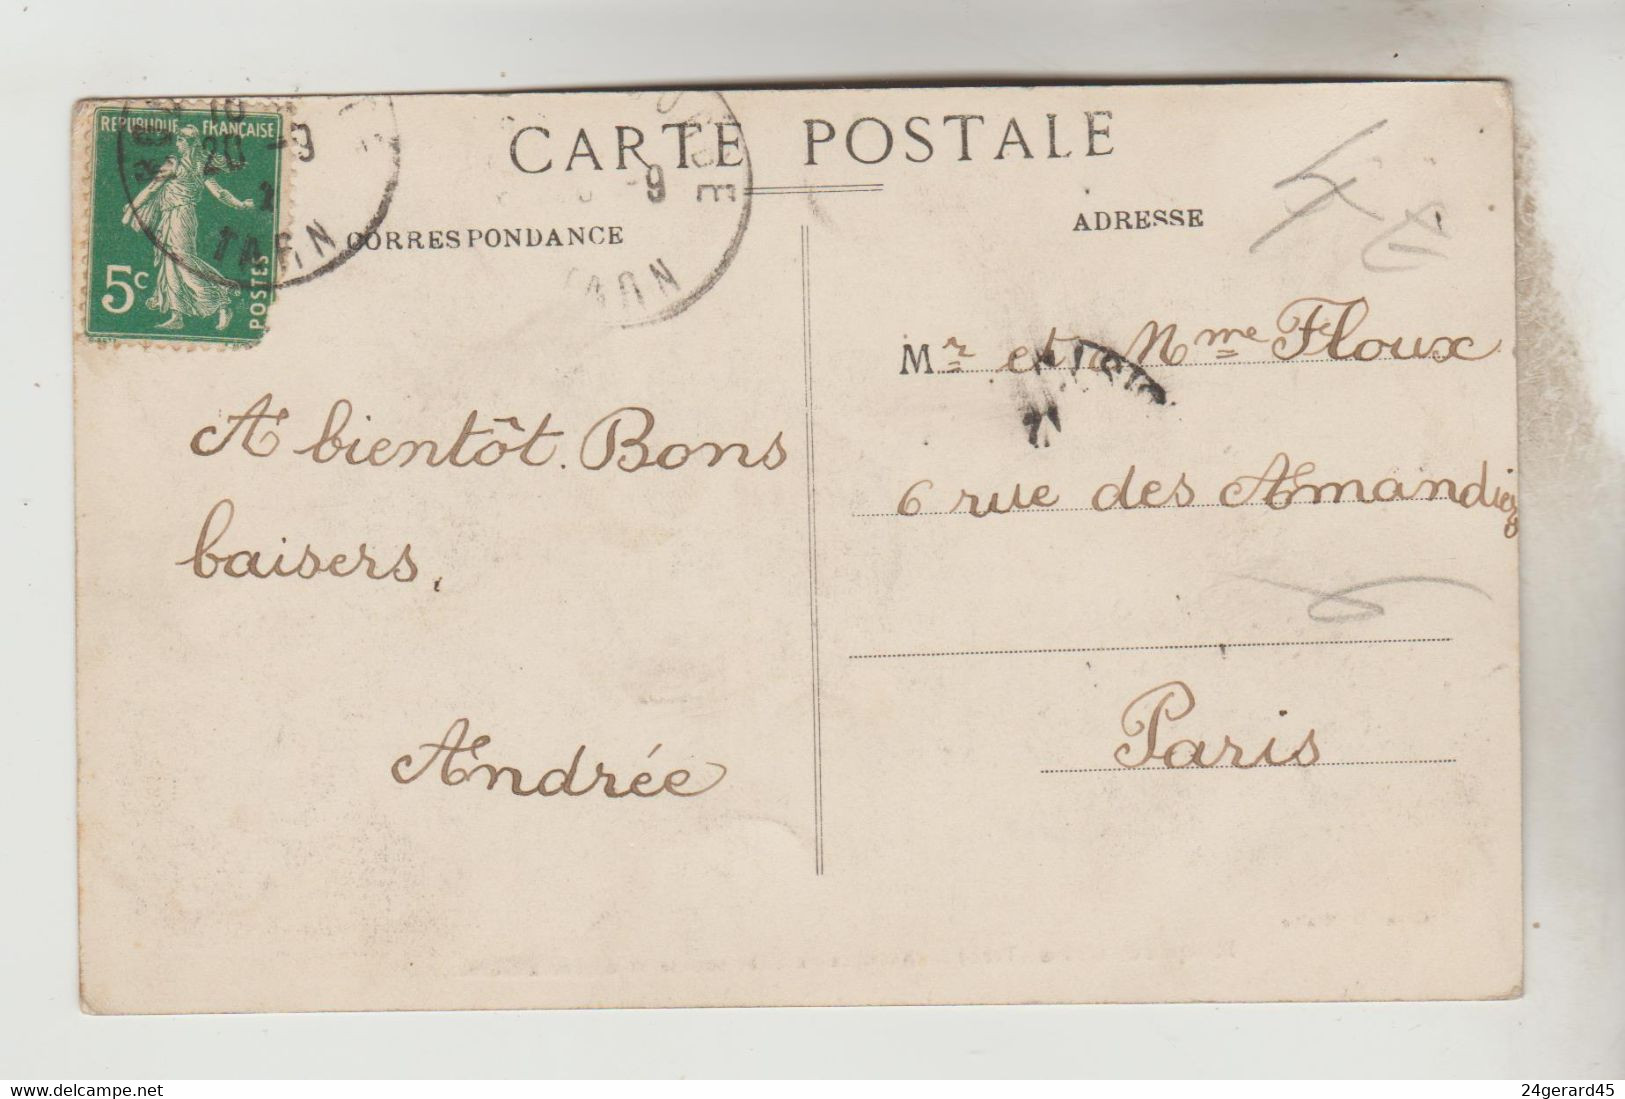 CARTE POSTALE
REPUBLIQUE FRANÇAISE
5c
POSTES
10
20 -9
TARN
-9
TARN
CORRESPONDANCE
ADRESSE
Mr et Mme Floux
6 rue des Amandiers
Paris
A bientôt. Bons
baisers,
Andrée
24gerard45